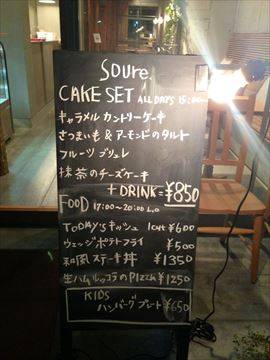 Soure.
CAKE SET ALL DAYS 15:00
キャラメル カントリーケーキ
さつまいも & アーモンドのタルト
フルーツ ブリュレ
抹茶のチーズケーキ
+ DRINK= ¥850
FOOD 17:00~20:00 L.O
TODAY'Sキッシュ 1cut ¥600
ウェッジポテトフライ ¥500
和風ステーキ丼 ¥1350
生ハムルッコラのPIZZA ¥1250
KIDS
ハンバーグプレート ¥650